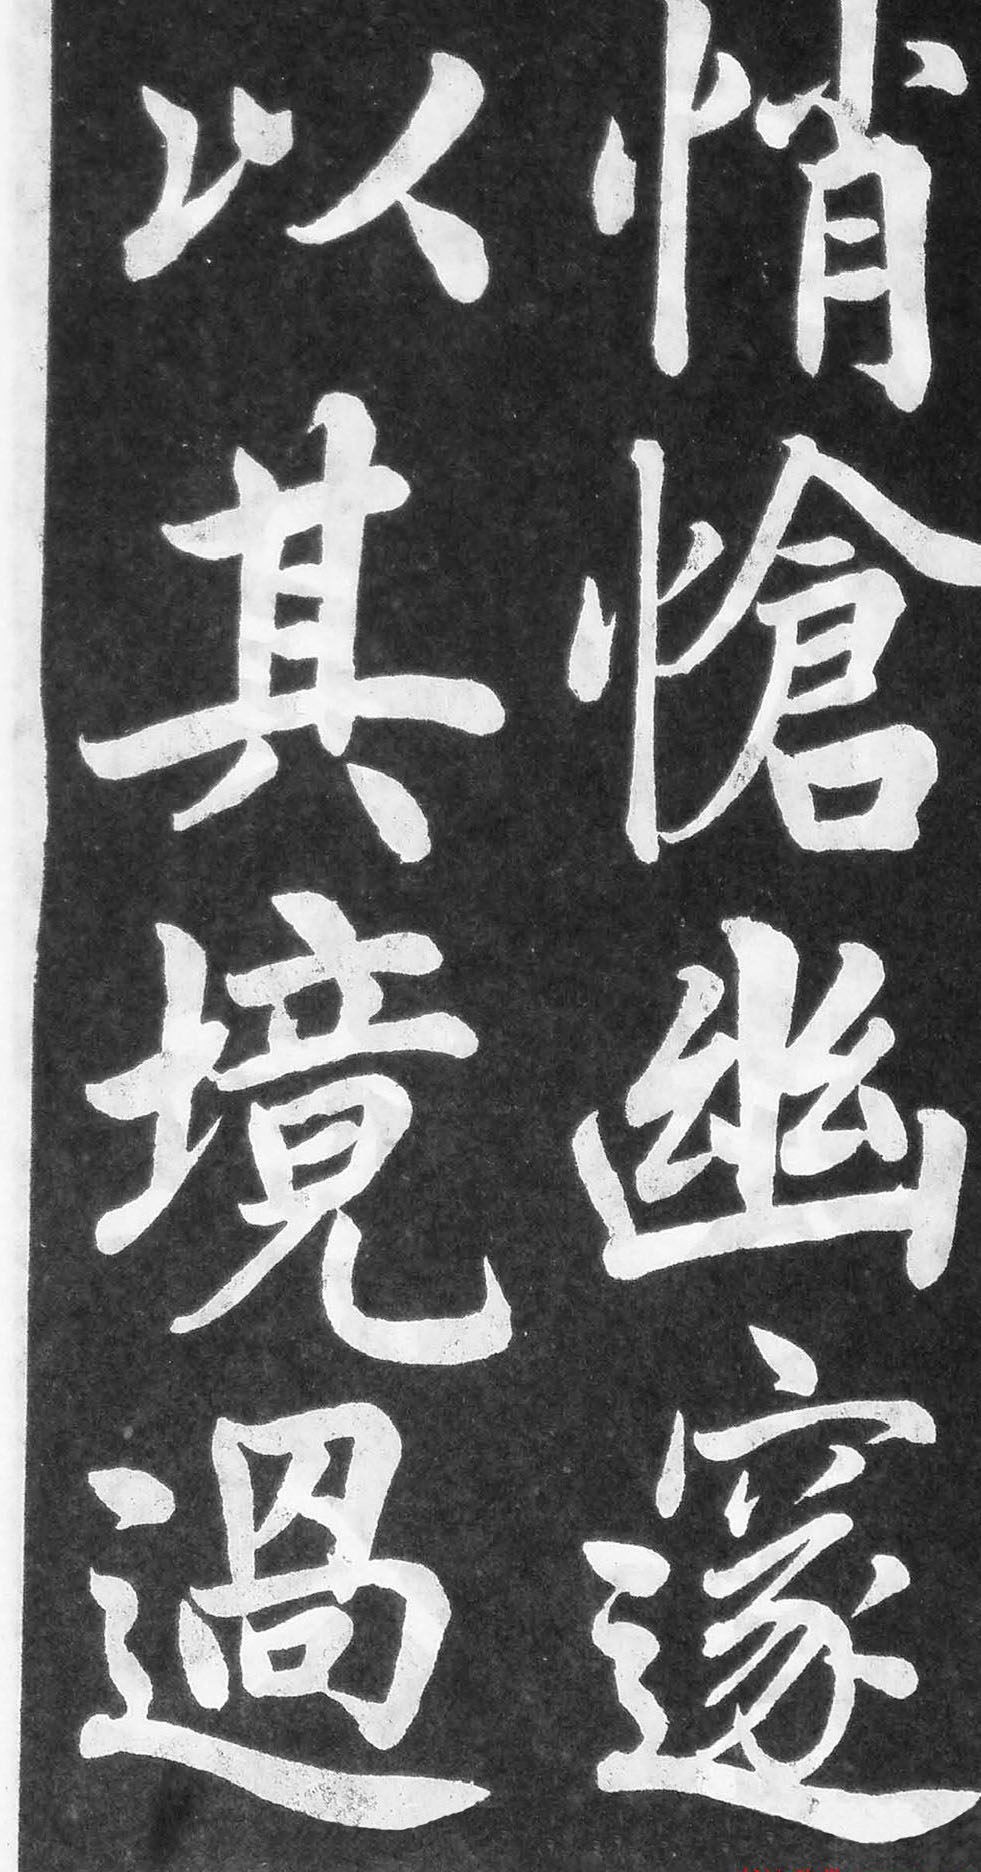 悄愴幽邃
以其境過